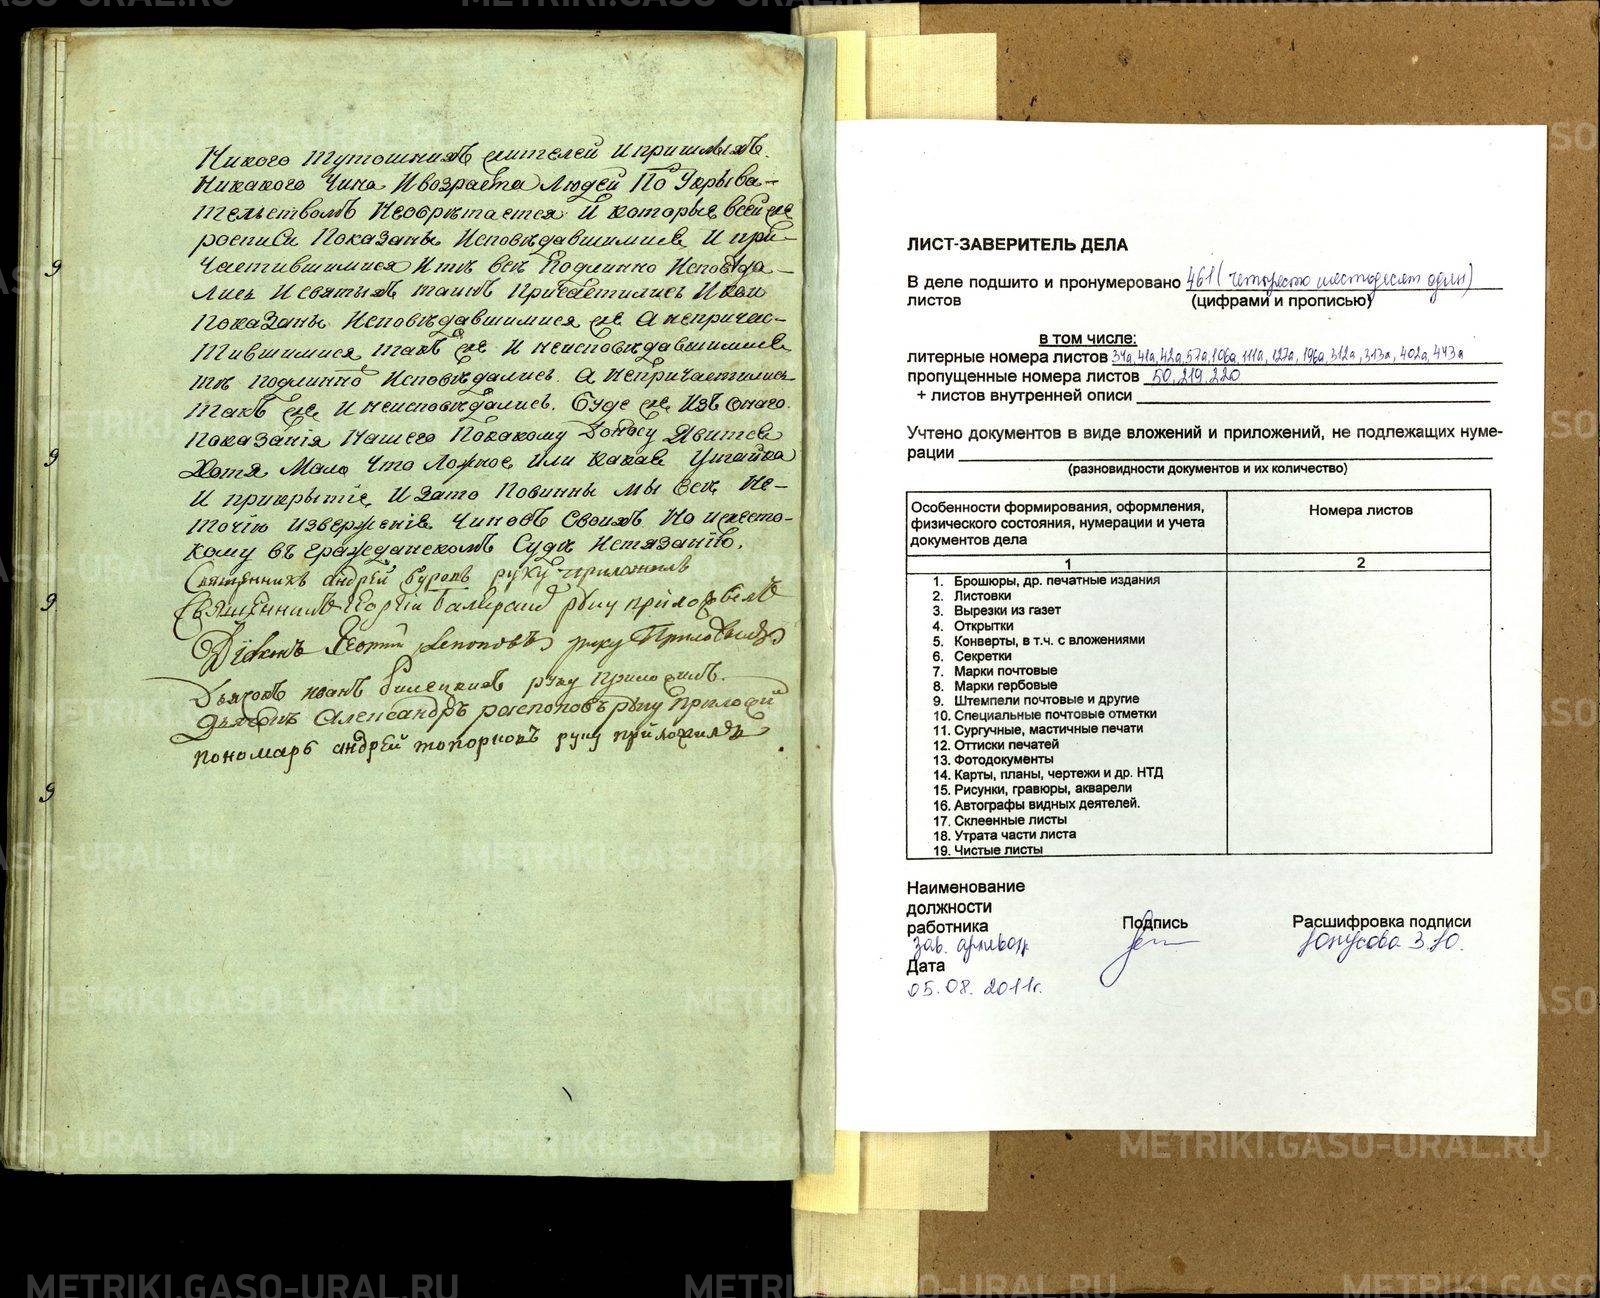 Никого тутошнихъ жителей и пришлыхъ
никакого чина и возраста людей по укрыва-
тельствомъ необрѣтается и которые в сей же
росписи показаны исповѣдавшимися и при-
частившимися и тѣ всѣ подлинно исповѣда-
лись и святыхъ таинъ приѡбщились и кои
показаны исповѣдавшимися же а непричас-
тившимися такъ же и неисповѣдавшимися
тѣ подлинно исповѣдались а непричастились
такъ же и неисповѣдались. буде же изъ онаго
показанїя нашего по какому доносу явится
хотя мало что ложное или какая утайка
и прикрытїе и за то повинны мы всѣ не-
точїю извержения чиновъ своихъ но и жесто-
кому въ гражданскомъ судѣ истязанїю.
Священникъ андрей руку приложилъ
Священникъ руку приложилъ
Дїяконъ Георгий руку приложилъ
Дьячокъ иванъ руку приложилъ.
дьячокъ Александръ распоповъ руку приложил
пономарь андрей топорковъ руку приложилъ
ЛИСТ-ЗАВЕРИТЕЛЬ ДЕЛА
В деле подшито и пронумеровано 461 (четыреста шестьдесят один)
листов (цифрами и прописью)
в том числе:
литерные номера листов 34а, 41а, 42а, 57а, 106а, 111а, 127а, 196а, 312а, 313а, 402а, 443а
пропущенные номера листов 50, 219, 220
+ листов внутренней описи
Учтено документов в виде вложений и приложений, не подлежащих нуме-
рации
(разновидности документов и их количество)
Особенности формирования, оформления, физического состояния, нумерации и учета документов дела Номера листов
1 2
1. Брошюры, др. печатные издания
2. Листовки
3. Вырезки из газет
4. Открытки
5. Конверты, в т.ч. с вложениями
6. Секретки
7. Марки почтовые
8. Марки гербовые
9. Штемпели почтовые и другие
10. Специальные почтовые отметки
11. Сургучные, мастичные печати
12. Оттиски печатей
13. Фотодокументы
14. Карты, планы, чертежи и др. НТД
15. Рисунки, гравюры, акварели
16. Автографы видных деятелей.
17. Склеенные листы
18. Утрата части листа
19. Чистые листы
Наименование
должности
работника Подпись Расшифровка подписи
зав. архивохр. Юнусова З.Ю.
Дата
05.08.2011г.
METRIKI.GASO-URAL.RU